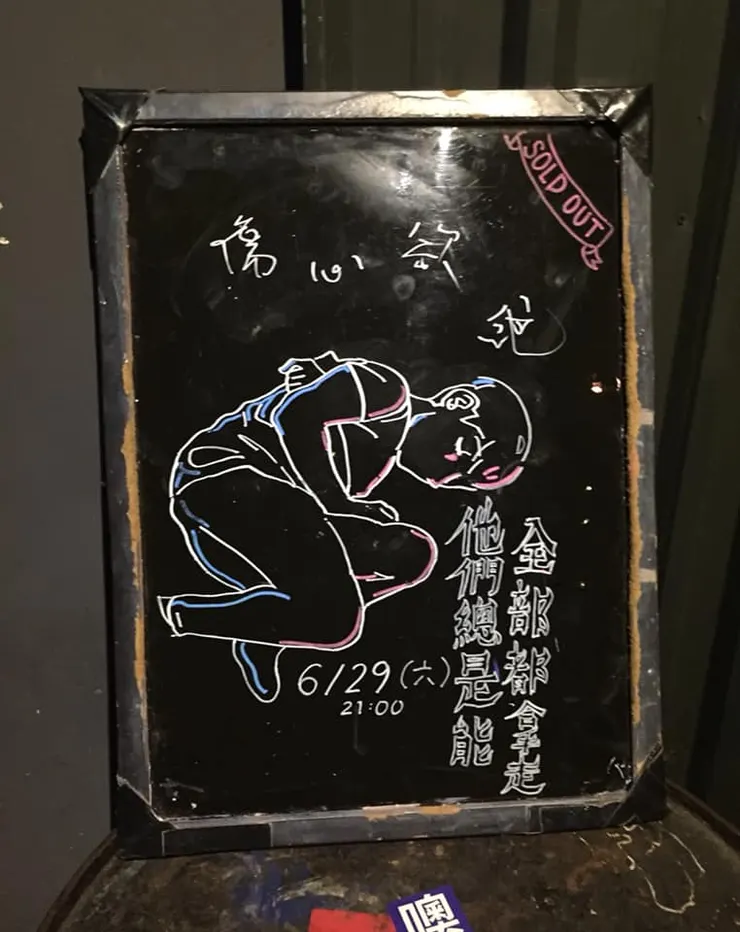 SOLD OUT
傷心欲
絕
全部都拿走
他們總是能
6/29(六)
21:00
噢